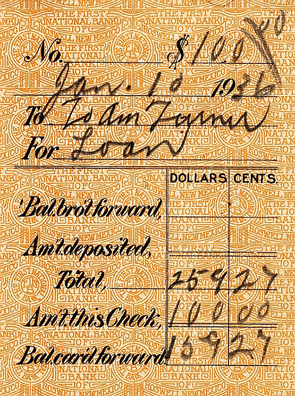 No. $100 00
Jan. 10 1936
To Adm Turner
For Loan
DOLLARS CENTS.
Bal. bro't forward,
Am't deposited,
Total, 259 27
Am't this Check, 100 00
Bal. car'd forward, 159 27